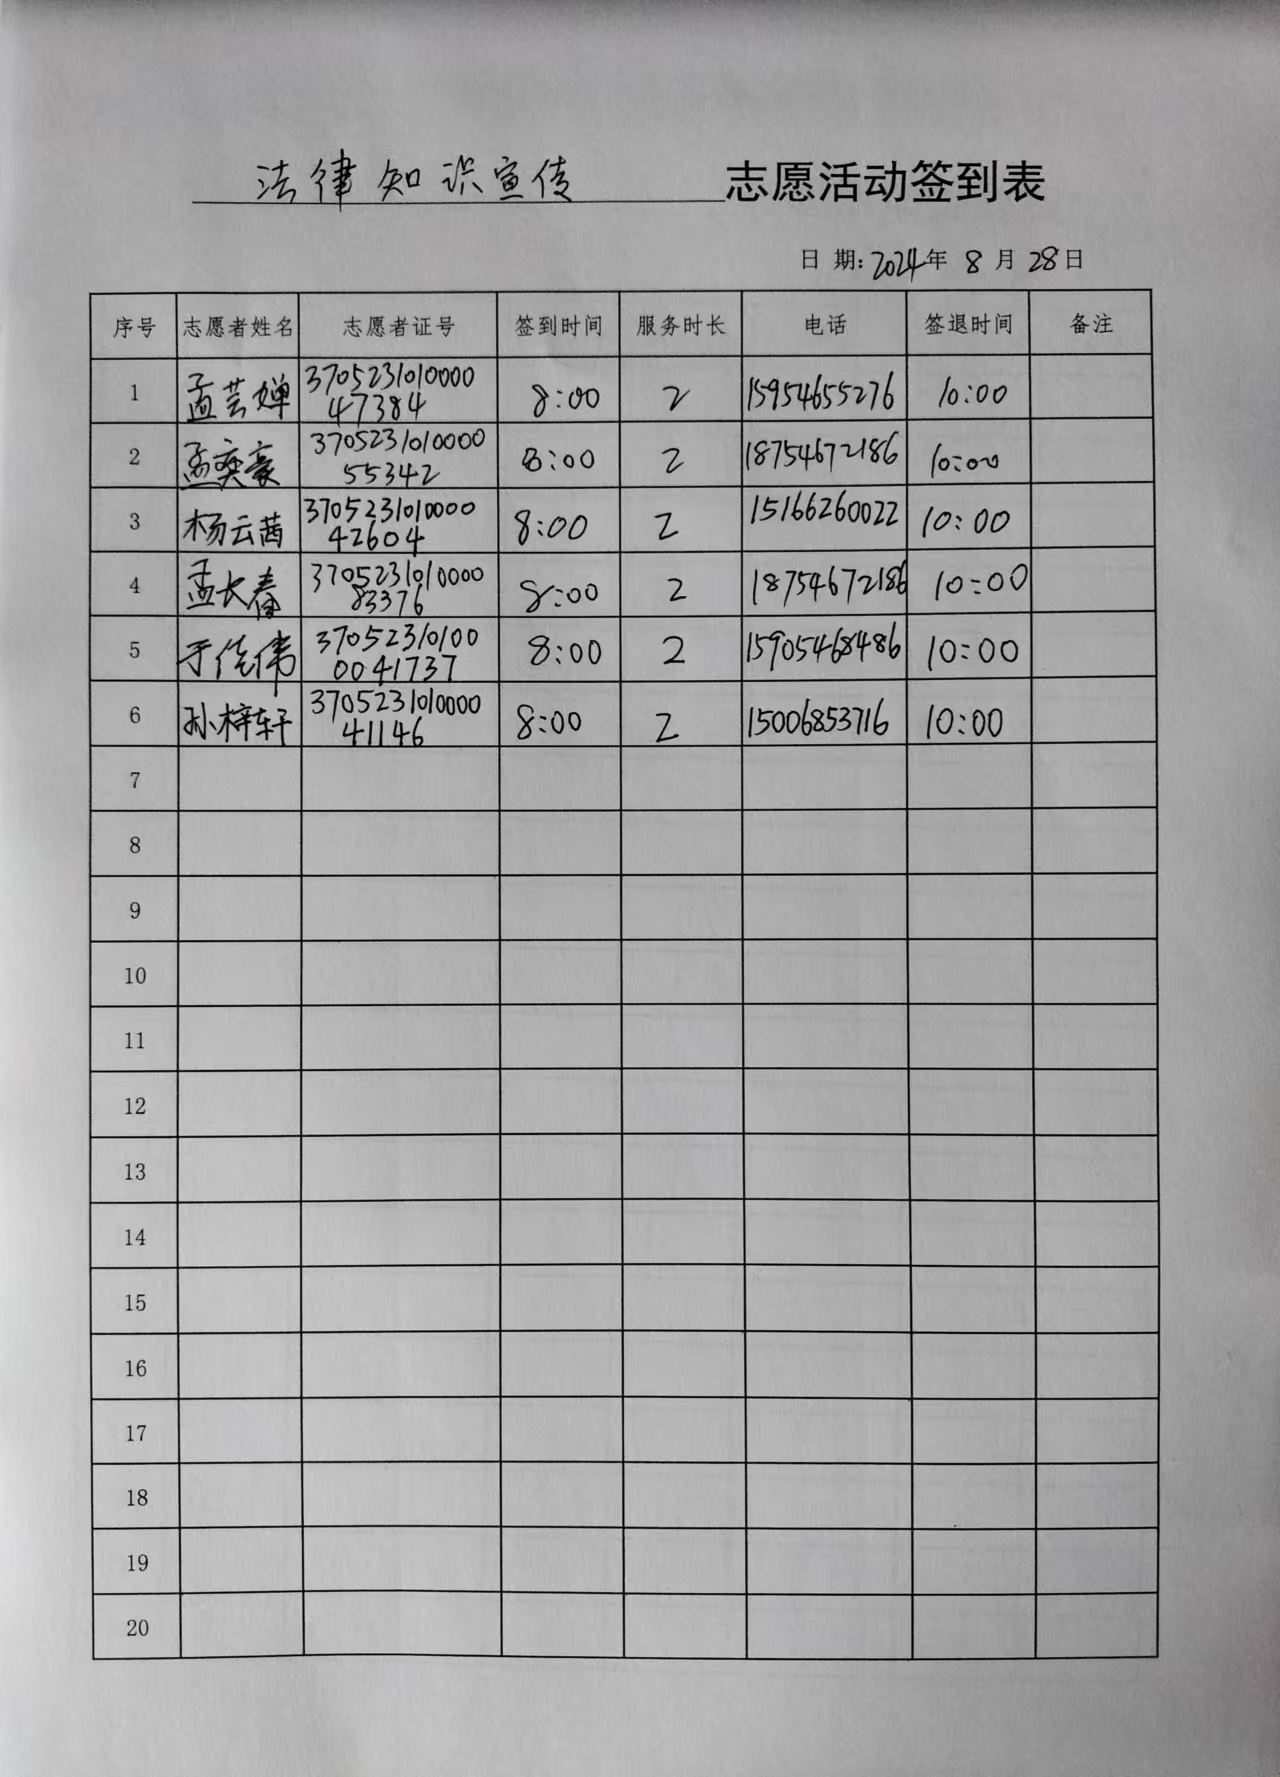 法律知识宣传 志愿活动签到表
日 期: 2024年 8 月 28日
序号 志愿者姓名 志愿者证号 签到时间 服务时长 电话 签退时间 备注
1 孟芸婵 3705231010000 8:00 2 15954655276 10:00
47384
2 孟奕豪 3705231010000 8:00 2 18754672186 10:00
55342
3 杨云茜 3705231010000 8:00 2 15166260022 10:00
42604
4 孟长春 3705231010000 8:00 2 18754672186 10:00
83376
5 于佳伟 37052310100 8:00 2 15905468486 10:00
0041737
6 孙梓轩 3705231010000 8:00 2 15006853716 10:00
41146
7
8
9
10
11
12
13
14
15
16
17
18
19
20